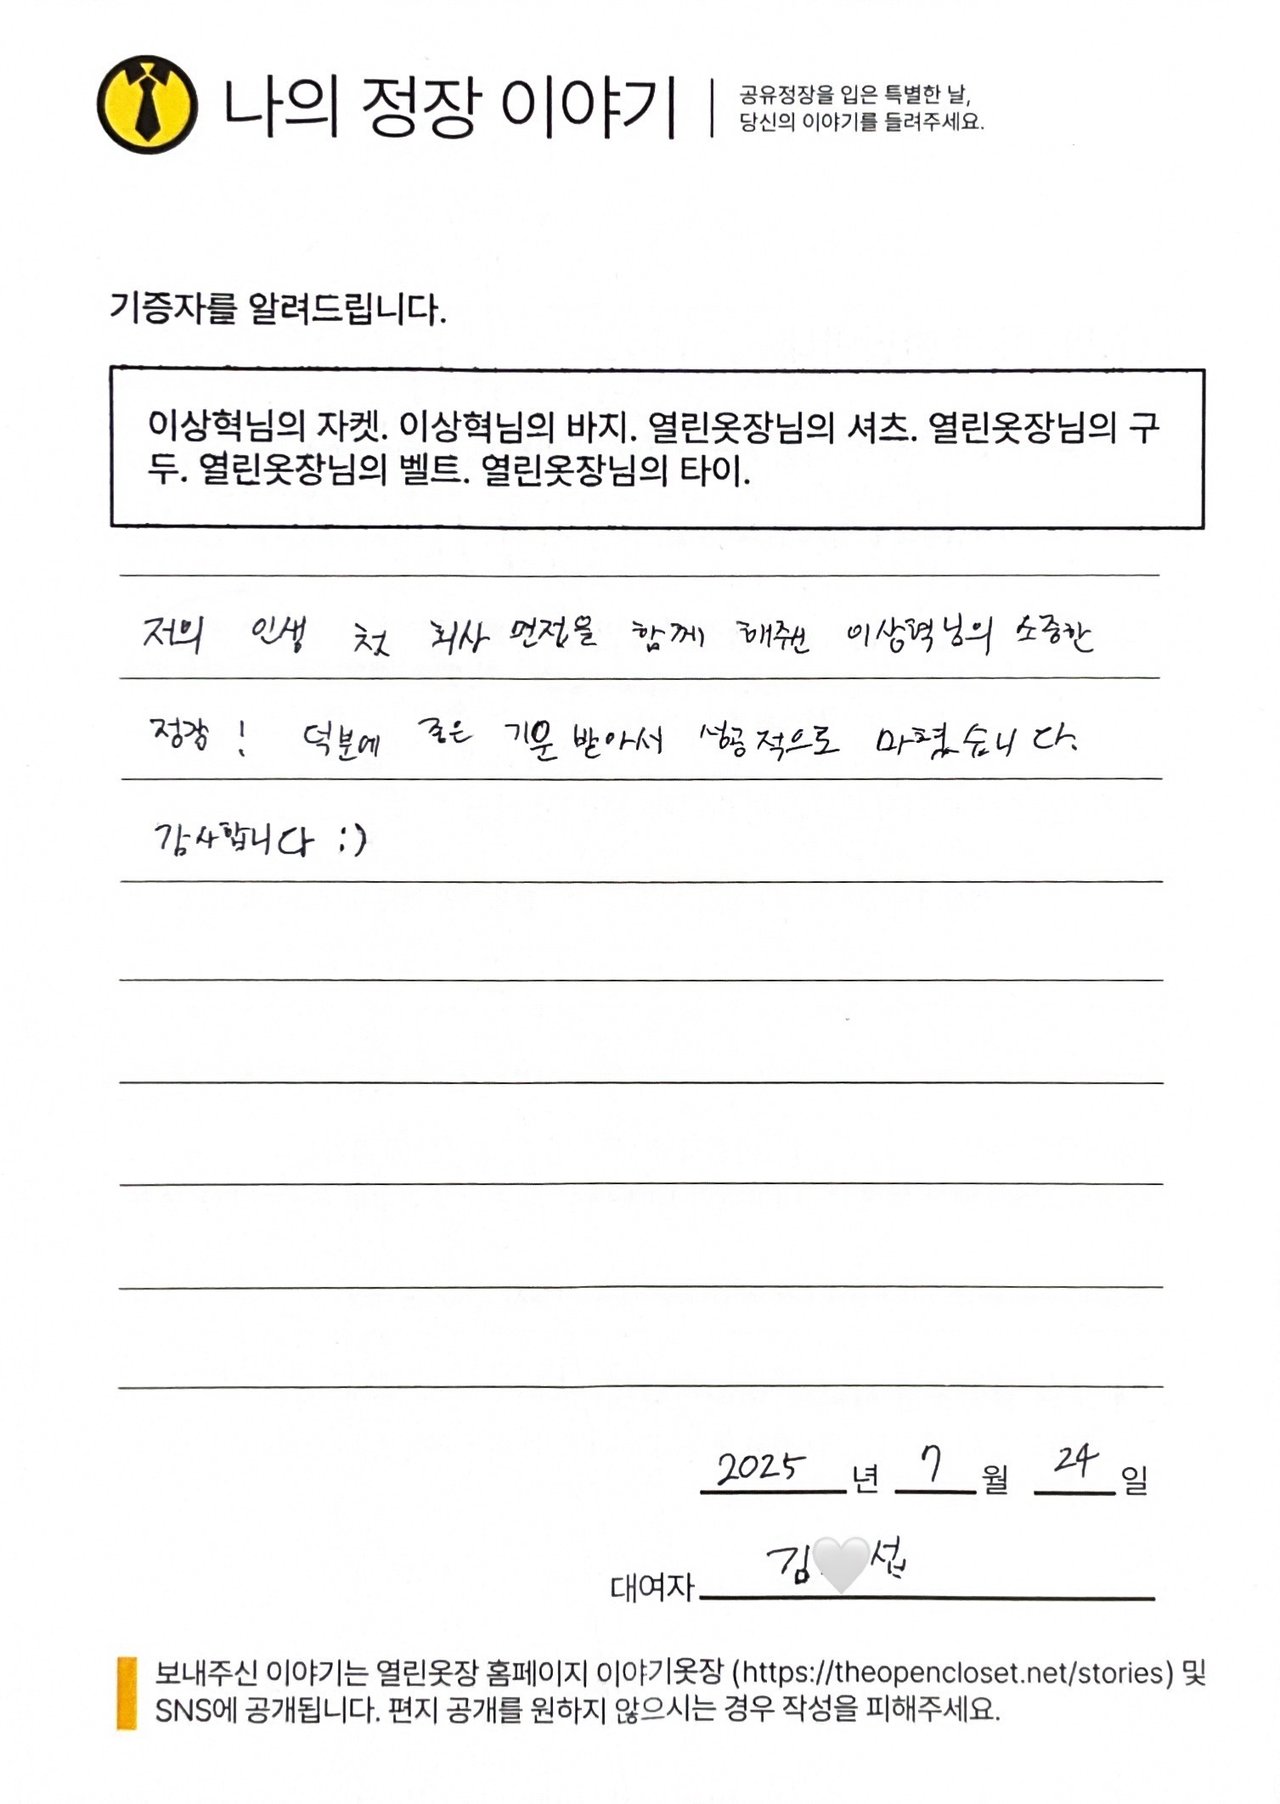 나의 정장 이야기
공유정장을 입은 특별한 날,
당신의 이야기를 들려주세요.
기증자를 알려드립니다.
이상혁님의 자켓. 이상혁님의 바지. 열린옷장님의 셔츠. 열린옷장님의 구
두. 열린옷장님의 벨트. 열린옷장님의 타이.
저의 인생 첫 회사 면접을 함께 해주신 이상혁님의 소중한
정장! 덕분에 좋은 기운 받아서 성공적으로 마쳤습니다.
감사합니다 :)
2025 년 7 월 24 일
대여자 김🤍섭
보내주신 이야기는 열린옷장 홈페이지 이야기옷장 (https://theopencloset.net/stories) 및
SNS에 공개됩니다. 편지 공개를 원하지 않으시는 경우 작성을 피해주세요.